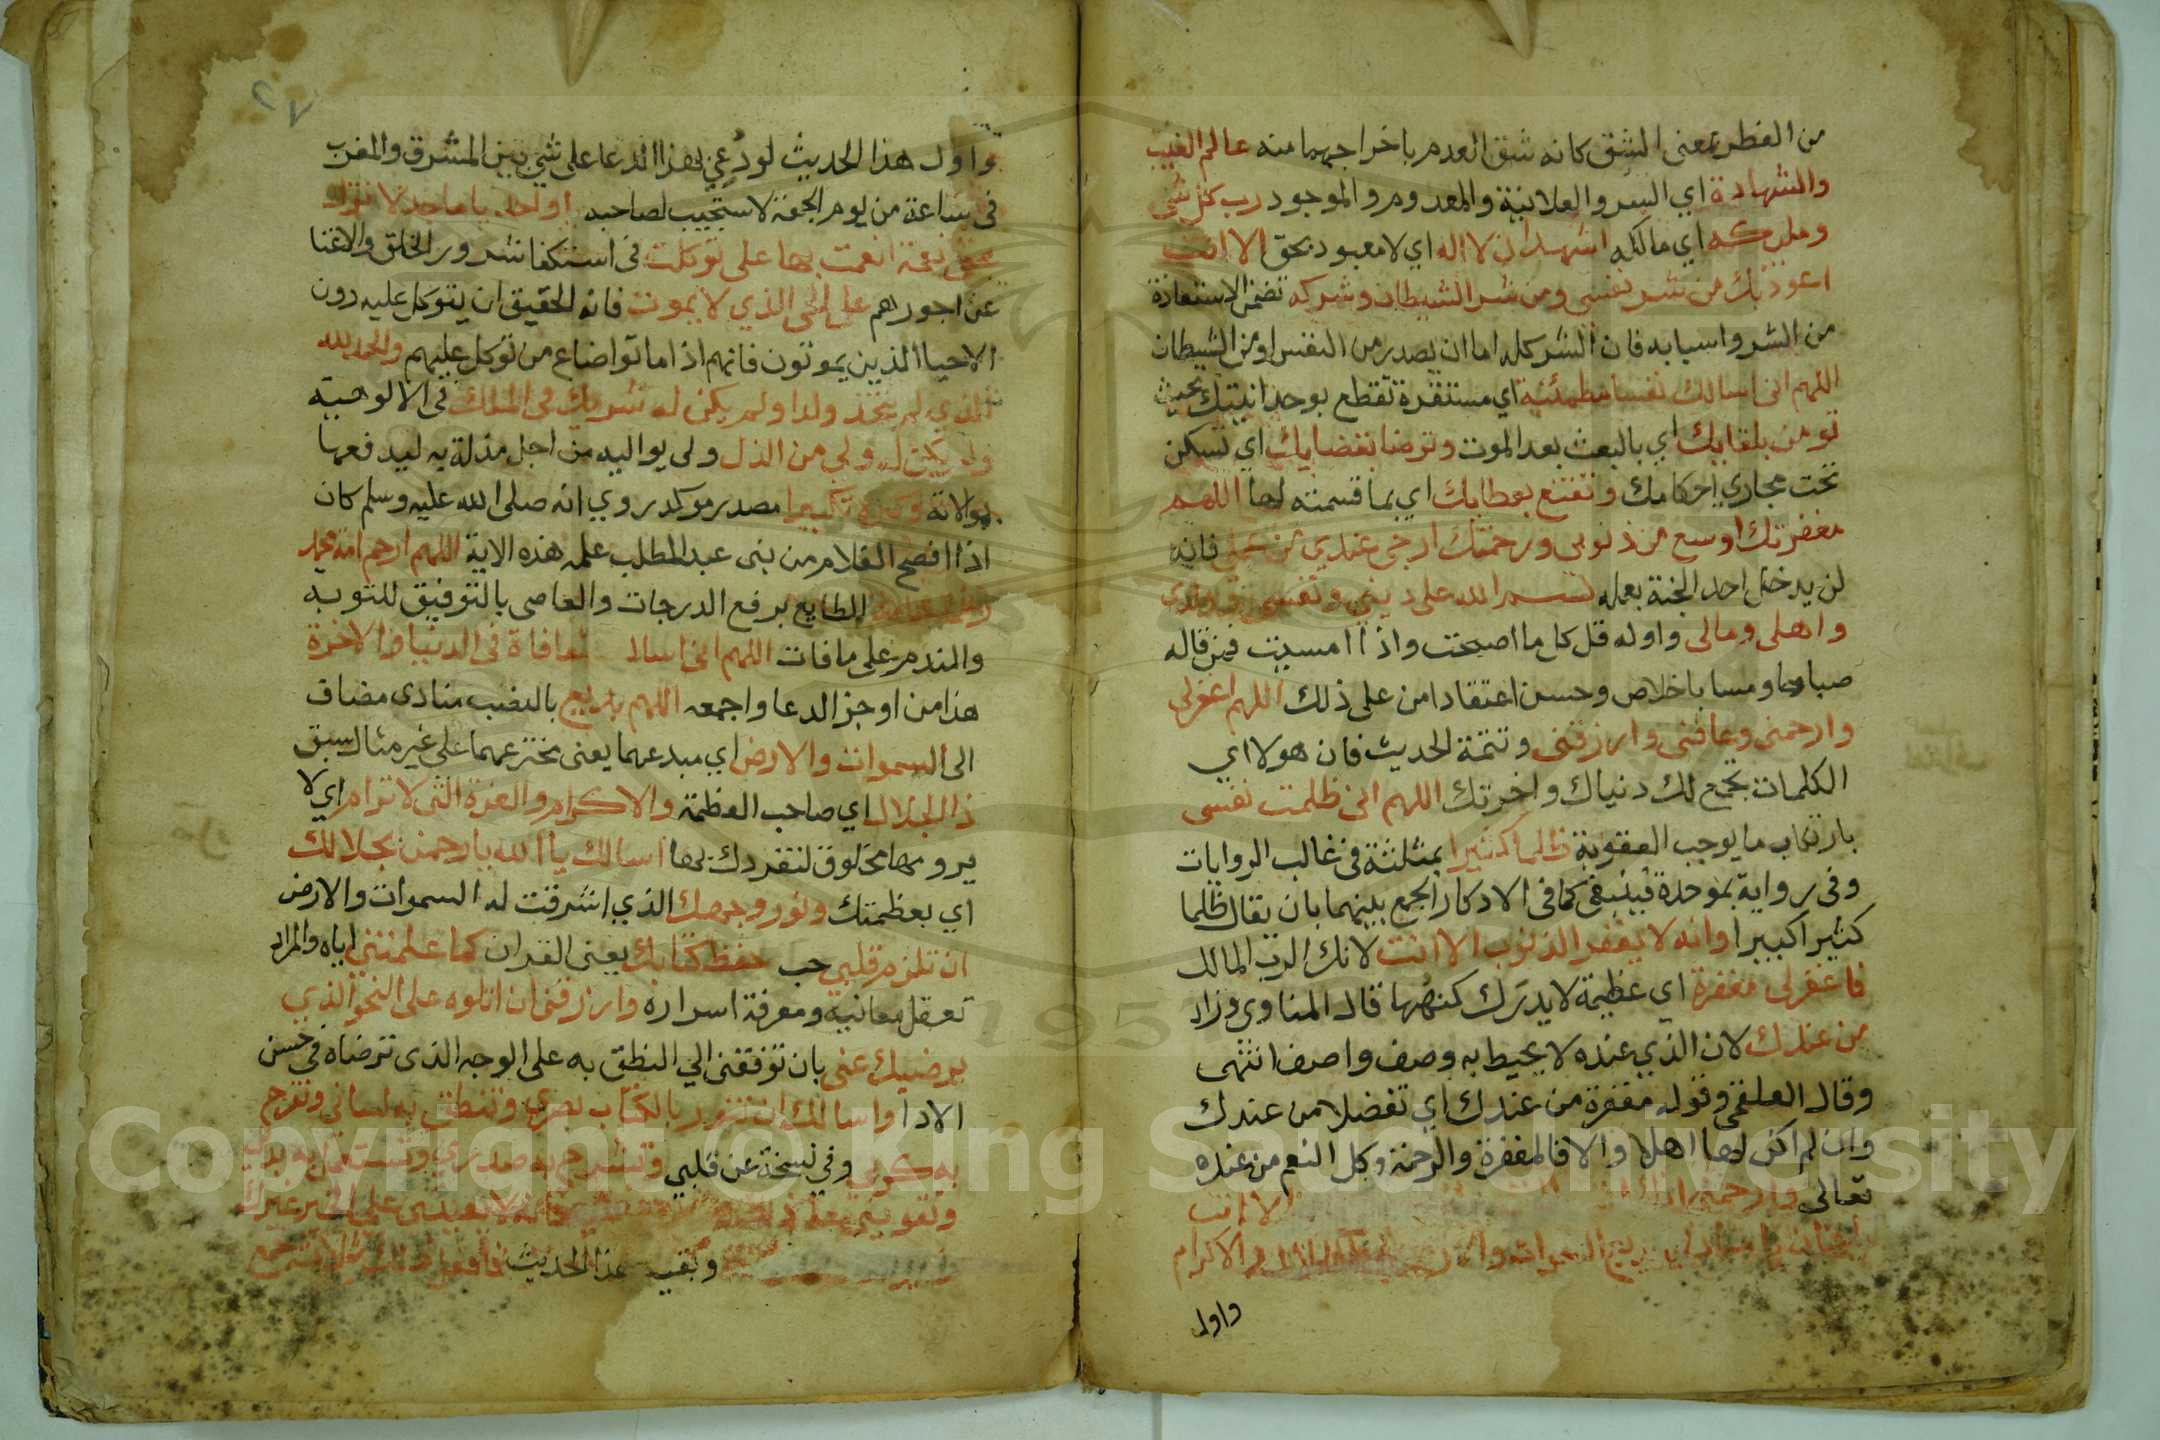 من الفطر بمعنى الشق كانه شق العدم باخراجهما منه عالم الغيب
والشهادة اي السر والعلانية والمعدوم والموجود رب كل شي
ومليكه اي مالكه اشهد ان لا اله اي لا معبود بحق الا انت
اعوذ بك من شر نفسي ومن شر الشيطان وشركه تضمن الاستعاذة
من الشر واسبابه فان الشر كله اما ان يصدر من النفس او من الشيطان
اللهم انى اسالك نفسا مطمئنة اي مستقرة تقطع بوحدانيتك بحيث
تومن بلقايك اي بالبعث بعد الموت وترضا بقضايك اي تسكن
تحت مجاري احكامك وتقنع بعطايك اي بما قسمته لها اللهم
مغفرتك اوسع من ذنوبى ورحمتك ارجى عندي من عملي فانه
لن يدخل احد الجنة بعمله بسم الله على ديني ونفسي وولدي
واهلى ومالى واوله قل كل ما اصبحت واذا امسيت فمن قاله
صباحا ومسا باخلاص وحسن اعتقاد امن على ذلك اللهم اغفرلى
وارحمنى وعافنى وارزقنى وتتمة الحديث فان هولا اي
الكلمات تجمع لك دنياك واخرتك اللهم انى ظلمت نفسى
بارتكاب ما يوجب العقوبة ظلما كثيرا بمثلثة فى غالب الروايات
وفى رواية بموحدة فينبغى كما فى الاذكار الجمع بينهما بان يقال ظلما
كثيرا كبيرا وانه لا يغفر الذنوب الا انت لانك الرب المالك
فاغفرلى مغفرة اي عظيمة لا يدرك كنهها قال المناوى وزاد
من عندك لان الذي عنده لا يحيط به وصف واصف انتهى
وقال العلقمى وقوله مغفرة من عندك اي تفضلا من عندك
وان لم اكن لها اهلا والا فالمغفرة والرحمة وكل النعم من عنده
تعالى وارحمنى انك الا انت
يا حنان يا منان يا بديع السموات والارض والاكرام
واول
٢٧
واول هذا الحديث لو دعي بهذا الدعا على شي بين المشرق والمغرب
فى ساعة من يوم الجمعة لاستجيب لصاحبه يا واجد يا ماجد لا تزل
عنى نعمة انعمت بها على توكلت فى استكفا شرور الخلق والاغنا
عن اجورهم على الحي الذي لا يموت فانه الحقيق ان يتوكل عليه دون
الاحيا الذين يموتون فانهم اذا ماتوا ضاع من توكل عليهم والحمد لله
الذي لم يتخذ ولدا ولم يكن له شريك فى الملك فى الالوهية
ولم يكن له ولي من الذل ولى يواليه من اجل مذلة به ليدفعها
بولاته وكبره تكبيرا مصدر موكد روي انه صلى الله عليه وسلم كان
اذا افصح الغلام من بنى عبد المطلب علمه هذه الاية اللهم ارحم امة محمد
الطايع برفع الدرجات والعاصى بالتوفيق للتوبه
والندم على ما فات اللهم انى اسالك المعافاة فى الدنيا والاخرة
هذا من اوجز الدعا واجمعه اللهم بديع بالنصب منادى مضاف
الى السموات والارض اي مبدعهما يعنى مخترعهما على غير مثال سبق
ذا الجلال اي صاحب العظمة والاكرام والعزة التى لا ترام اي لا
يرومها مخلوق لتفردك بها اسالك يا الله يا رحمن بجلالك
اي بعظمتك ونور وجهك الذي اشرقت له السموات والارض
ان تلزم قلبي حب حفظ كتابك يعنى القران كما علمتني اياه والمراد
تعقل معانيه ومعرفة اسراره وارزقنى ان اتلوه على النحو الذي
يرضيك عنى بان توفقنى الي النطق به على الوجه الذى ترضاه فى حسن
الادا واسالك ان تنور بالكتاب بصري وتنطق به لسانى وتفرج
به كربي وفي نسخة عن قلبي وتشرح به صدري وتستعمل به بدني
وتقويني على ذلك فانه لا يعيننى على الخير غيرك
وبقية هذا الحديث فافعل ذلك ثلاث جمع